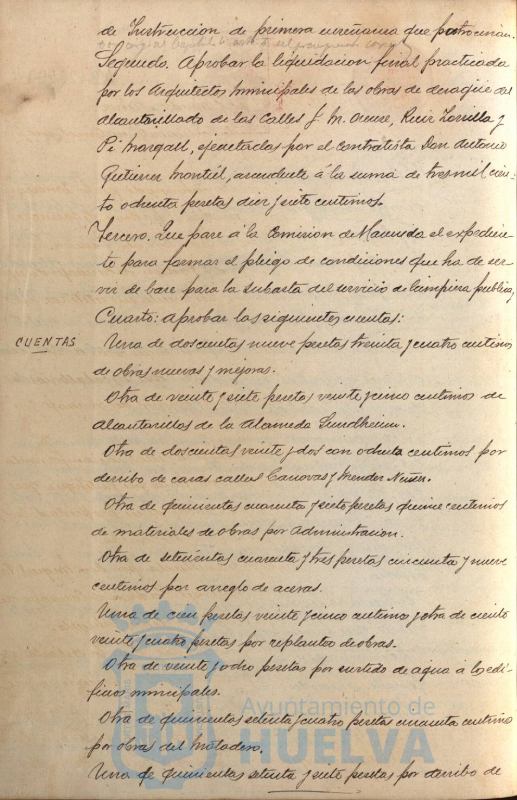 de Instruccion de primera enseñanza que patrocinan.
Segundo. Aprobar la liquidacion final practicada
por los Arquitectos municipales de las obras de desagüe del
alcantarillado de las Calles J. M. Ruiz Zorrilla y
Pi Margall, ejecutadas por el contratista Don Antonio
Gutierrez Montiel, ascendente á la suma de tres mil cien-
to ochenta pesetas diez y siete centimos.
Tercero. Que pase á la Comision de Hacienda el expedien-
te para formar el pliego de condiciones que ha de ser-
vir de base para la subasta del servicio de limpieza publica y
Cuarto: Aprobar las siguientes cuentas:
CUENTAS
Una de doscientas nueve pesetas treinta y cuatro centimos
de obras nuevas y mejoras.
Otra de veinte y siete pesetas veinte y cinco centimos de
alcantarillas de la Alameda Sundheim.
Otra de doscientas veinte y dos con ochenta centimos por
derribo de casas calles Canovas y Mendez Nuñez.
Otra de quinientas cuarenta y siete pesetas quince centimos
de materiales de obras por administracion.
Otra de setecientas cuarenta y tres pesetas cincuenta y nueve
centimos por arreglo de aceras.
Una de cien pesetas veinte y cinco centimos y otra de ciento
veinte y cuatro pesetas por replanteo de obras.
Otra de veinte y ocho pesetas por surtido de agua á los edi-
ficios municipales.
Otra de quinientas setenta y cuatro pesetas cuarenta centimos
por obras del Matadero.
Una de quinientas setenta y siete pesetas por derribo de
Ayuntamiento de
HUELVA